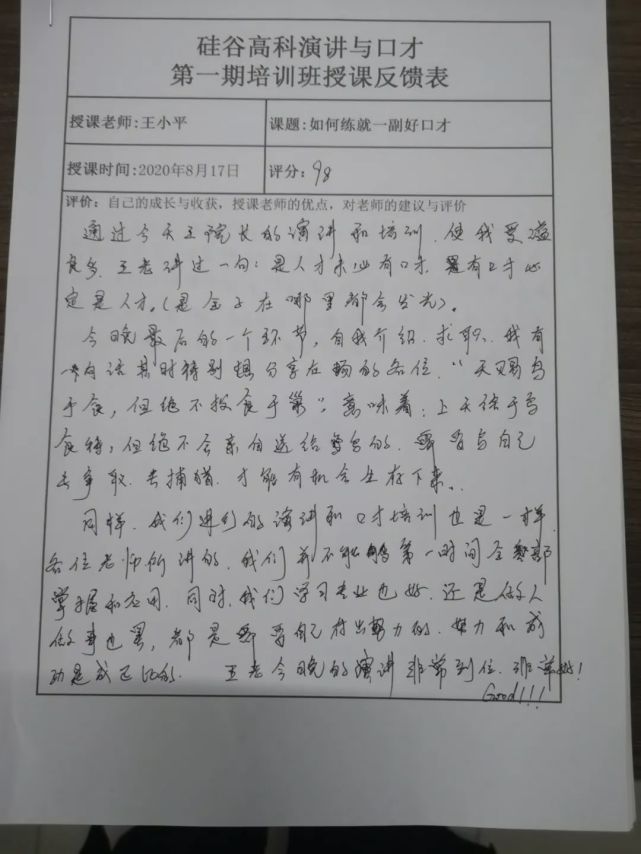 硅谷高科演讲与口才
第一期培训班授课反馈表
授课老师:王小平
课题:如何练就一副好口才
授课时间:2020年8月17日
评分: 98
评价: 自己的成长与收获，授课老师的优点，对老师的建议与评价
通过今天王院长的演讲和培训，使我受溢
良多，王老讲过一句：是人才未必有口才，有口才必
定是人才。（是金子在哪里都会发光）。
今晚最后的一个环节，自我介绍、求职、我有
一句话其时特别想分享在场的各位，“天赐鸟
于食，但绝不投食于巢”，意味着：上天给于鸟
食物，但绝不会亲自送给鸟的，自己
去争取、去捕猎，才能有机会生存下来。
同样，我们进行的演讲和口才培训也是一样，
各位老师所讲的，我们并不能够第一时间全部
掌握和应用，同时，我们学习专业也好，还是做人
做事也罢，都是要自己付出努力的，努力和成
功是成正比的。 王老今晚的演讲非常到位，非常好！
Good!!!